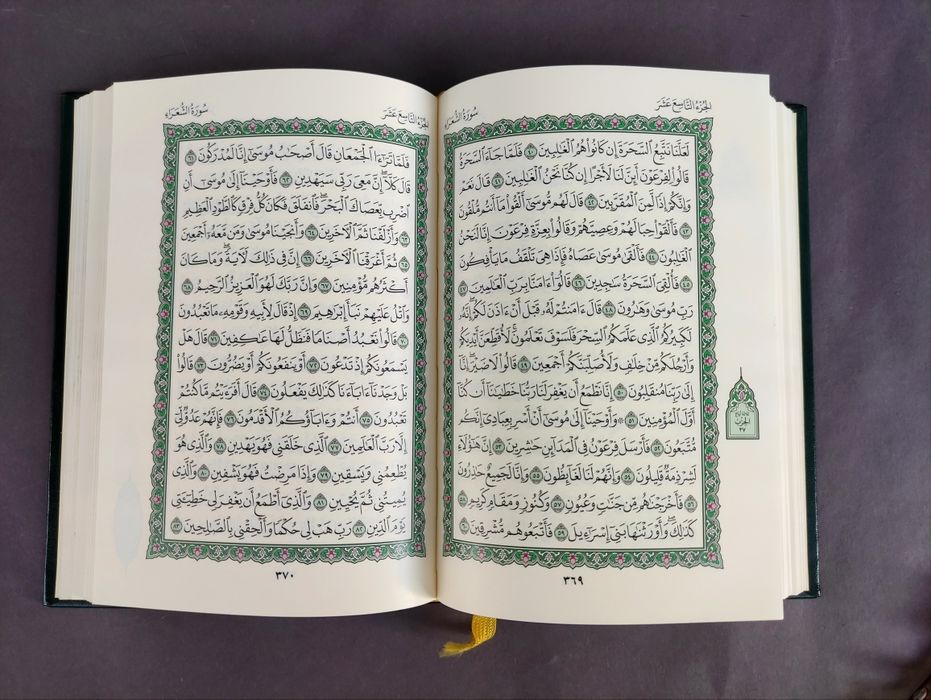 الجُزْءُ التَّاسِعَ عَشَرَ
سُورَةُ الشُّعَرَاءِ
لَعَلَّنَا نَتَّبِعُ ٱلسَّحَرَةَ إِن كَانُوا۟ هُمُ ٱلْغَٰلِبِينَ ٤٠ فَلَمَّا جَآءَ ٱلسَّحَرَةُ
قَالُوا۟ لِفِرْعَوْنَ أَئِنَّ لَنَا لَأَجْرًا إِن كُنَّا نَحْنُ ٱلْغَٰلِبِينَ ٤١ قَالَ نَعَمْ
وَإِنَّكُمْ إِذًا لَّمِنَ ٱلْمُقَرَّبِينَ ٤٢ قَالَ لَهُم مُّوسَىٰٓ أَلْقُوا۟ مَآ أَنتُم مُّلْقُونَ
٤٣ فَأَلْقَوْا۟ حِبَالَهُمْ وَعِصِيَّهُمْ وَقَالُوا۟ بِعِزَّةِ فِرْعَوْنَ إِنَّا لَنَحْنُ
ٱلْغَٰلِبُونَ ٤٤ فَأَلْقَىٰ مُوسَىٰ عَصَاهُ فَإِذَا هِىَ تَلْقَفُ مَا يَأْفِكُونَ
٤٥ فَأُلْقِىَ ٱلسَّحَرَةُ سَٰجِدِينَ ٤٦ قَالُوٓا۟ ءَامَنَّا بِرَبِّ ٱلْعَٰلَمِينَ ٤٧
رَبِّ مُوسَىٰ وَهَٰرُونَ ٤٨ قَالَ ءَامَنتُمْ لَهُۥ قَبْلَ أَنْ ءَاذَنَ لَكُمْ إِنَّهُۥ
لَكَبِيرُكُمُ ٱلَّذِى عَلَّمَكُمُ ٱلسِّحْرَ فَلَسَوْفَ تَعْلَمُونَ لَأُقَطِّعَنَّ أَيْدِيَكُمْ
وَأَرْجُلَكُم مِّنْ خِلَٰفٍ وَلَأُصَلِّبَنَّكُمْ أَجْمَعِينَ ٤٩ قَالُوا۟ لَا ضَيْرَ إِنَّآ
إِلَىٰ رَبِّنَا مُنقَلِبُونَ ٥٠ إِنَّا نَطْمَعُ أَن يَغْفِرَ لَنَا رَبُّنَا خَطَٰيَٰنَآ أَن كُنَّآ
أَوَّلَ ٱلْمُؤْمِنِينَ ٥١ ۞ وَأَوْحَيْنَآ إِلَىٰ مُوسَىٰٓ أَنْ أَسْرِ بِعِبَادِىٓ إِنَّكُم
مُّتَّبَعُونَ ٥٢ فَأَرْسَلَ فِرْعَوْنُ فِى ٱلْمَدَآئِنِ حَٰشِرِينَ ٥٣ إِنَّ هَٰٓؤُلَآءِ
لَشِرْذِمَةٌ قَلِيلُونَ ٥٤ وَإِنَّهُمْ لَنَا لَغَآئِظُونَ ٥٥ وَإِنَّا لَجَمِيعٌ حَٰذِرُونَ
٥٦ فَأَخْرَجْنَٰهُم مِّن جَنَّٰتٍ وَعُيُونٍ ٥٧ وَكُنُوزٍ وَمَقَامٍ كَرِيمٍ ٥٨
كَذَٰلِكَ وَأَوْرَثْنَٰهَا بَنِىٓ إِسْرَٰٓءِيلَ ٥٩ فَأَتْبَعُوهُم مُّشْرِقِينَ ٦٠
الحِزْب
٣٧
٣٦٩
الجُزْءُ التَّاسِعَ عَشَرَ
سُورَةُ الشُّعَرَاءِ
فَلَمَّا تَرَٰٓءَا ٱلْجَمْعَانِ قَالَ أَصْحَٰبُ مُوسَىٰٓ إِنَّا لَمُدْرَكُونَ ٦١
قَالَ كَلَّآ إِنَّ مَعِىَ رَبِّى سَيَهْدِينِ ٦٢ فَأَوْحَيْنَآ إِلَىٰ مُوسَىٰٓ أَنِ
ٱضْرِب بِّعَصَاكَ ٱلْبَحْرَ فَٱنفَلَقَ فَكَانَ كُلُّ فِرْقٍ كَٱلطَّوْدِ ٱلْعَظِيمِ
٦٣ وَأَزْلَفْنَا ثَمَّ ٱلْءَاخَرِينَ ٦٤ وَأَنجَيْنَا مُوسَىٰ وَمَن مَّعَهُۥٓ أَجْمَعِينَ
٦٥ ثُمَّ أَغْرَقْنَا ٱلْءَاخَرِينَ ٦٦ إِنَّ فِى ذَٰلِكَ لَءَايَةً وَمَا كَانَ
أَكْثَرُهُم مُّؤْمِنِينَ ٦٧ وَإِنَّ رَبَّكَ لَهُوَ ٱلْعَزِيزُ ٱلرَّحِيمُ ٦٨
وَٱتْلُ عَلَيْهِمْ نَبَأَ إِبْرَٰهِيمَ ٦٩ إِذْ قَالَ لِأَبِيهِ وَقَوْمِهِۦ مَا تَعْبُدُونَ
٧٠ قَالُوا۟ نَعْبُدُ أَصْنَامًا فَنَظَلُّ لَهَا عَٰكِفِينَ ٧١ قَالَ هَلْ
يَسْمَعُونَكُمْ إِذْ تَدْعُونَ ٧٢ أَوْ يَنفَعُونَكُمْ أَوْ يَضُرُّونَ ٧٣ قَالُوا۟
بَلْ وَجَدْنَآ ءَابَآءَنَا كَذَٰلِكَ يَفْعَلُونَ ٧٤ قَالَ أَفَرَءَيْتُم مَّا كُنتُمْ
تَعْبُدُونَ ٧٥ أَنتُمْ وَءَابَآؤُكُمُ ٱلْأَقْدَمُونَ ٧٦ فَإِنَّهُمْ عَدُوٌّ لِّىٓ
إِلَّا رَبَّ ٱلْعَٰلَمِينَ ٧٧ ٱلَّذِى خَلَقَنِى فَهُوَ يَهْدِينِ ٧٨ وَٱلَّذِى هُوَ
يُطْعِمُنِى وَيَسْقِينِ ٧٩ وَإِذَا مَرِضْتُ فَهُوَ يَشْفِينِ ٨٠ وَٱلَّذِى
يُمِيتُنِى ثُمَّ يُحْيِينِ ٨١ وَٱلَّذِىٓ أَطْمَعُ أَن يَغْفِرَ لِى خَطِيٓـَٔتِى
يَوْمَ ٱلدِّينِ ٨٢ رَبِّ هَبْ لِى حُكْمًا وَأَلْحِقْنِى بِٱلصَّٰلِحِينَ ٨٣
٣٧٠